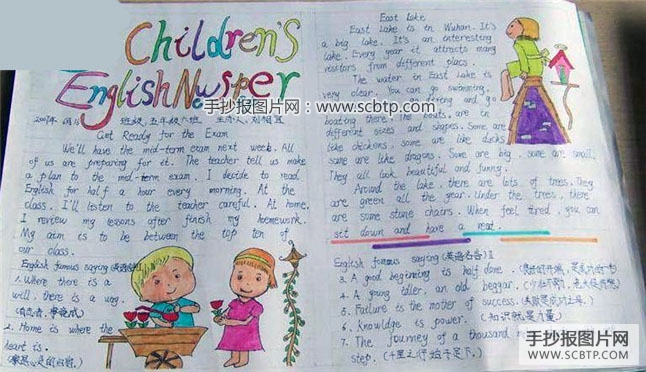 Children's
English Nwsper
手抄报图片网：www.scbtp.com
班级：五年级六班
Get Ready for the Exam
We'll have the mid-term exam next week. All
of us are preparing for it. The teacher tell us make
a plan to the mid-term exam. I decide to read
English for half a hour every morning. At the
class. I'll listen to the teacher careful. At home.
I review my lessons after finish my homework.
My aim is to be between the top ten of
our class.
English famous saying (英语名言) I
1. Where there is a
will, there is a way.
(有志者，事竟成)
2. Home is where the
heart is.
East Lake
East Lake is in Wuhan. It's
a big lake. It's an interesting
lake. Every year it attracts many
visitors from different places.
The water in East Lake is
very clear. You can go swimming,
and go
boating there. The boats are in
different sizes and shapes. Some are
like chickens, some are like ducks
some are like dragons. Some are big, some are small.
They all look beautiful and funny.
Around the lake, there are lots of trees. They
are green all the year. Under the trees, there
are some stone chairs. When feel tired, you can
sit down and have a rest.
English famous saying (英语名言) II
3. A good beginning is half done. (良好的开端，是成功的一半)
4. A young idler, an old beggar.
5. Failure is the mother of success. (失败是成功之母。)
6. Knowldge is power. (知识就是力量)
7. The journey of a thousand
step. (千里之行始于足下。)
手抄报图片网
WWW.SCBTP.COM